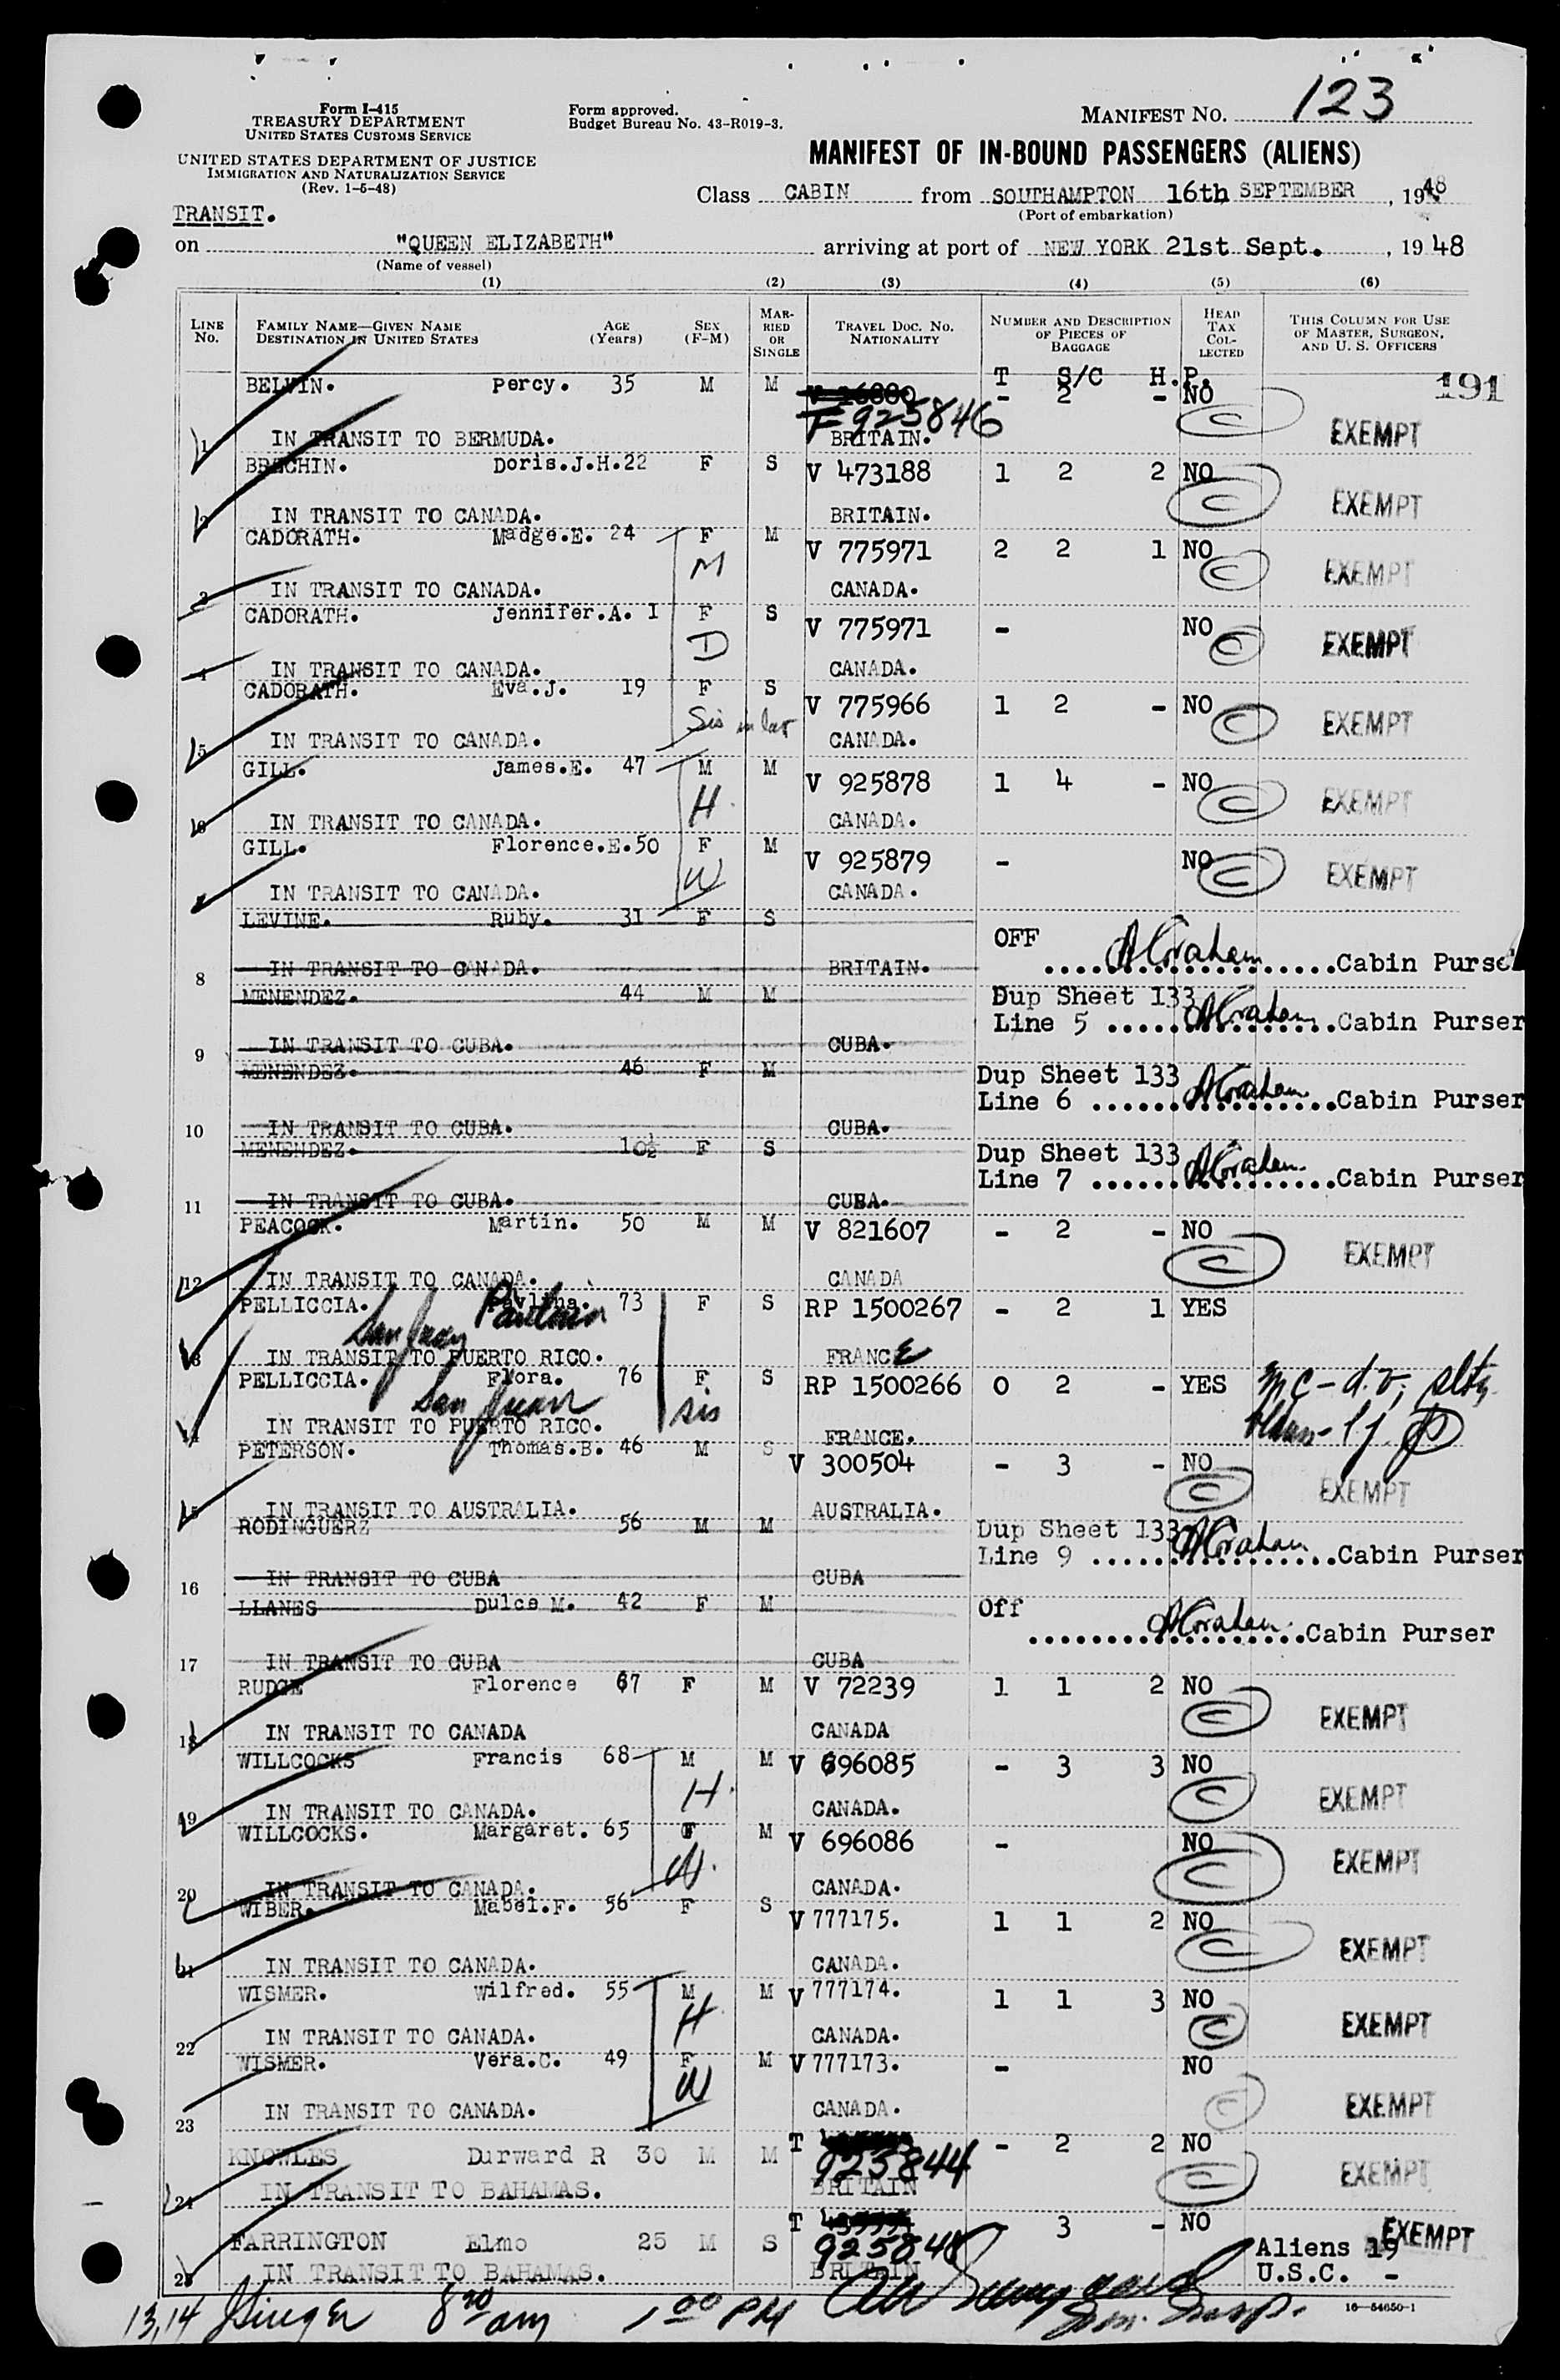 Form I-415
TREASURY DEPARTMENT
UNITED STATES CUSTOMS SERVICE
UNITED STATES DEPARTMENT OF JUSTICE
IMMIGRATION AND NATURALIZATION SERVICE
(Rev. 1-5-48)
Form approved.
Budget Bureau No. 43-R019-3.
MANIFEST NO. 123
MANIFEST OF IN-BOUND PASSENGERS (ALIENS)
Class CABIN from SOUTHAMPTON 16th SEPTEMBER, 1948
(Port of embarkation)
TRANSIT.
on "QUEEN ELIZABETH" arriving at port of NEW YORK 21st Sept., 1948
(Name of vessel)
(1) (2) (3) (4) (5) (6)
LINE No. FAMILY NAME—GIVEN NAME DESTINATION IN UNITED STATES AGE (Years) SEX (F-M) MARRIED OR SINGLE TRAVEL DOC. NO. NATIONALITY NUMBER AND DESCRIPTION OF PIECES OF BAGGAGE HEAD TAX COLLECTED THIS COLUMN FOR USE OF MASTER, SURGEON, AND U. S. OFFICERS
T S/C H.P.
191
BELVIN. Percy. 35 M M V 36880 - 2 - NO
F 925846
1 IN TRANSIT TO BERMUDA. BRITAIN. C EXEMPT
BRECHIN. Doris.J.H.22 F S V 473188 1 2 2 NO
2 IN TRANSIT TO CANADA. BRITAIN. C EXEMPT
CADORATH. Madge.E. 24 F M V 775971 2 2 1 NO
M
3 IN TRANSIT TO CANADA. CANADA. C EXEMPT
CADORATH. Jennifer.A. I F S V 775971 - NO
D
4 IN TRANSIT TO CANADA. CANADA. C EXEMPT
CADORATH. Eva.J. 19 F S V 775966 1 2 - NO
Sis in law
5 IN TRANSIT TO CANADA. CANADA. C EXEMPT
GILL. James.E. 47 M M V 925878 1 4 - NO
H.
6 IN TRANSIT TO CANADA. CANADA. C EXEMPT
GILL. Florence.E.50 F M V 925879 - NO
W
7 IN TRANSIT TO CANADA. CANADA. C EXEMPT
LEVINE. Ruby. 31 F S OFF
8 IN TRANSIT TO CANADA. BRITAIN. A Graham Cabin Purse
MENENDEZ. 44 M M Dup Sheet 133
Line 5 A Graham Cabin Purser
9 IN TRANSIT TO CUBA. CUBA.
MENENDEZ. 46 F M Dup Sheet 133
Line 6 A Graham Cabin Purser
10 IN TRANSIT TO CUBA. CUBA.
MENENDEZ. 10½ F S Dup Sheet 133
Line 7 A Graham Cabin Purser
11 IN TRANSIT TO CUBA. CUBA.
PEACOCK. Martin. 50 M M V 821607 - 2 - NO
12 IN TRANSIT TO CANADA. CANADA C EXEMPT
PELLICCIA. Pavlina. 73 F S RP 1500267 - 2 1 YES
San Juan
13 IN TRANSIT TO PUERTO RICO. FRANCE
PELLICCIA. Flora. 76 F S RP 1500266 0 2 - YES
San Juan sis
14 IN TRANSIT TO PUERTO RICO. FRANCE.
PETERSON. Thomas.B. 46 M S V 300504 - 3 - NO
15 IN TRANSIT TO AUSTRALIA. AUSTRALIA. C EXEMPT
RODINGUERZ 56 M M Dup Sheet 133
Line 9 A Graham Cabin Purser
16 IN TRANSIT TO CUBA CUBA
LLANES Dulce M. 42 F M Off
A Graham Cabin Purser
17 IN TRANSIT TO CUBA CUBA
RUDGE Florence 67 F M V 72239 1 1 2 NO
18 IN TRANSIT TO CANADA CANADA C EXEMPT
WILLCOCKS Francis 68 M M V 696085 - 3 3 NO
H.
19 IN TRANSIT TO CANADA. CANADA. C EXEMPT
WILLCOCKS. Margaret. 65 F M V 696086 - NO
W.
20 IN TRANSIT TO CANADA. CANADA. C EXEMPT
WIBER. Mabel.F. 56 F S V 777175. 1 1 2 NO
21 IN TRANSIT TO CANADA. CANADA. C EXEMPT
WISMER. Wilfred. 55 M M V 777174. 1 1 3 NO
H
22 IN TRANSIT TO CANADA. CANADA. C EXEMPT
WISMER. Vera.C. 49 F M V 777173. - NO
W
23 IN TRANSIT TO CANADA. CANADA. C EXEMPT
KNOWLES Durward R 30 M M T 925844 - 2 2 NO
24 IN TRANSIT TO BAHAMAS. BRITAIN C EXEMPT
FARRINGTON Elmo 25 M S T 925848 - 3 - NO EXEMPT
25 IN TRANSIT TO BAHAMAS. BRITAIN
Aliens 19
U.S.C. -
13,14 8 30 am 1 00 PM
Imm. Insp.
16-54650-1